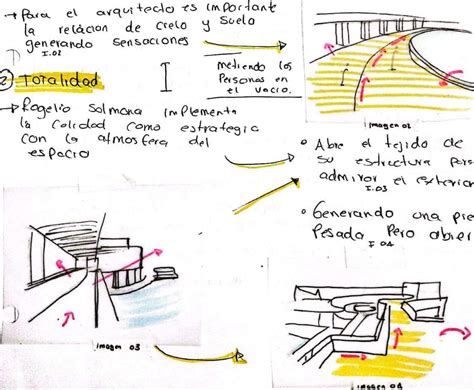 → Para el arquitecto es importante
la relación de cielo y suelo
generando sensaciones
I.02
Metiendo las
Personas en
el vacio.
2 Totalidad
→ Rogelio Salmona implementa
la calidad como estrategia
con la atmosfera del
espacio
imagen 02
• Abre el tejido de
su estructura para
admirar el exterior
I.03
• Generando una pie
Pesada Pero abier
I 04
imagen 03
imagen 04